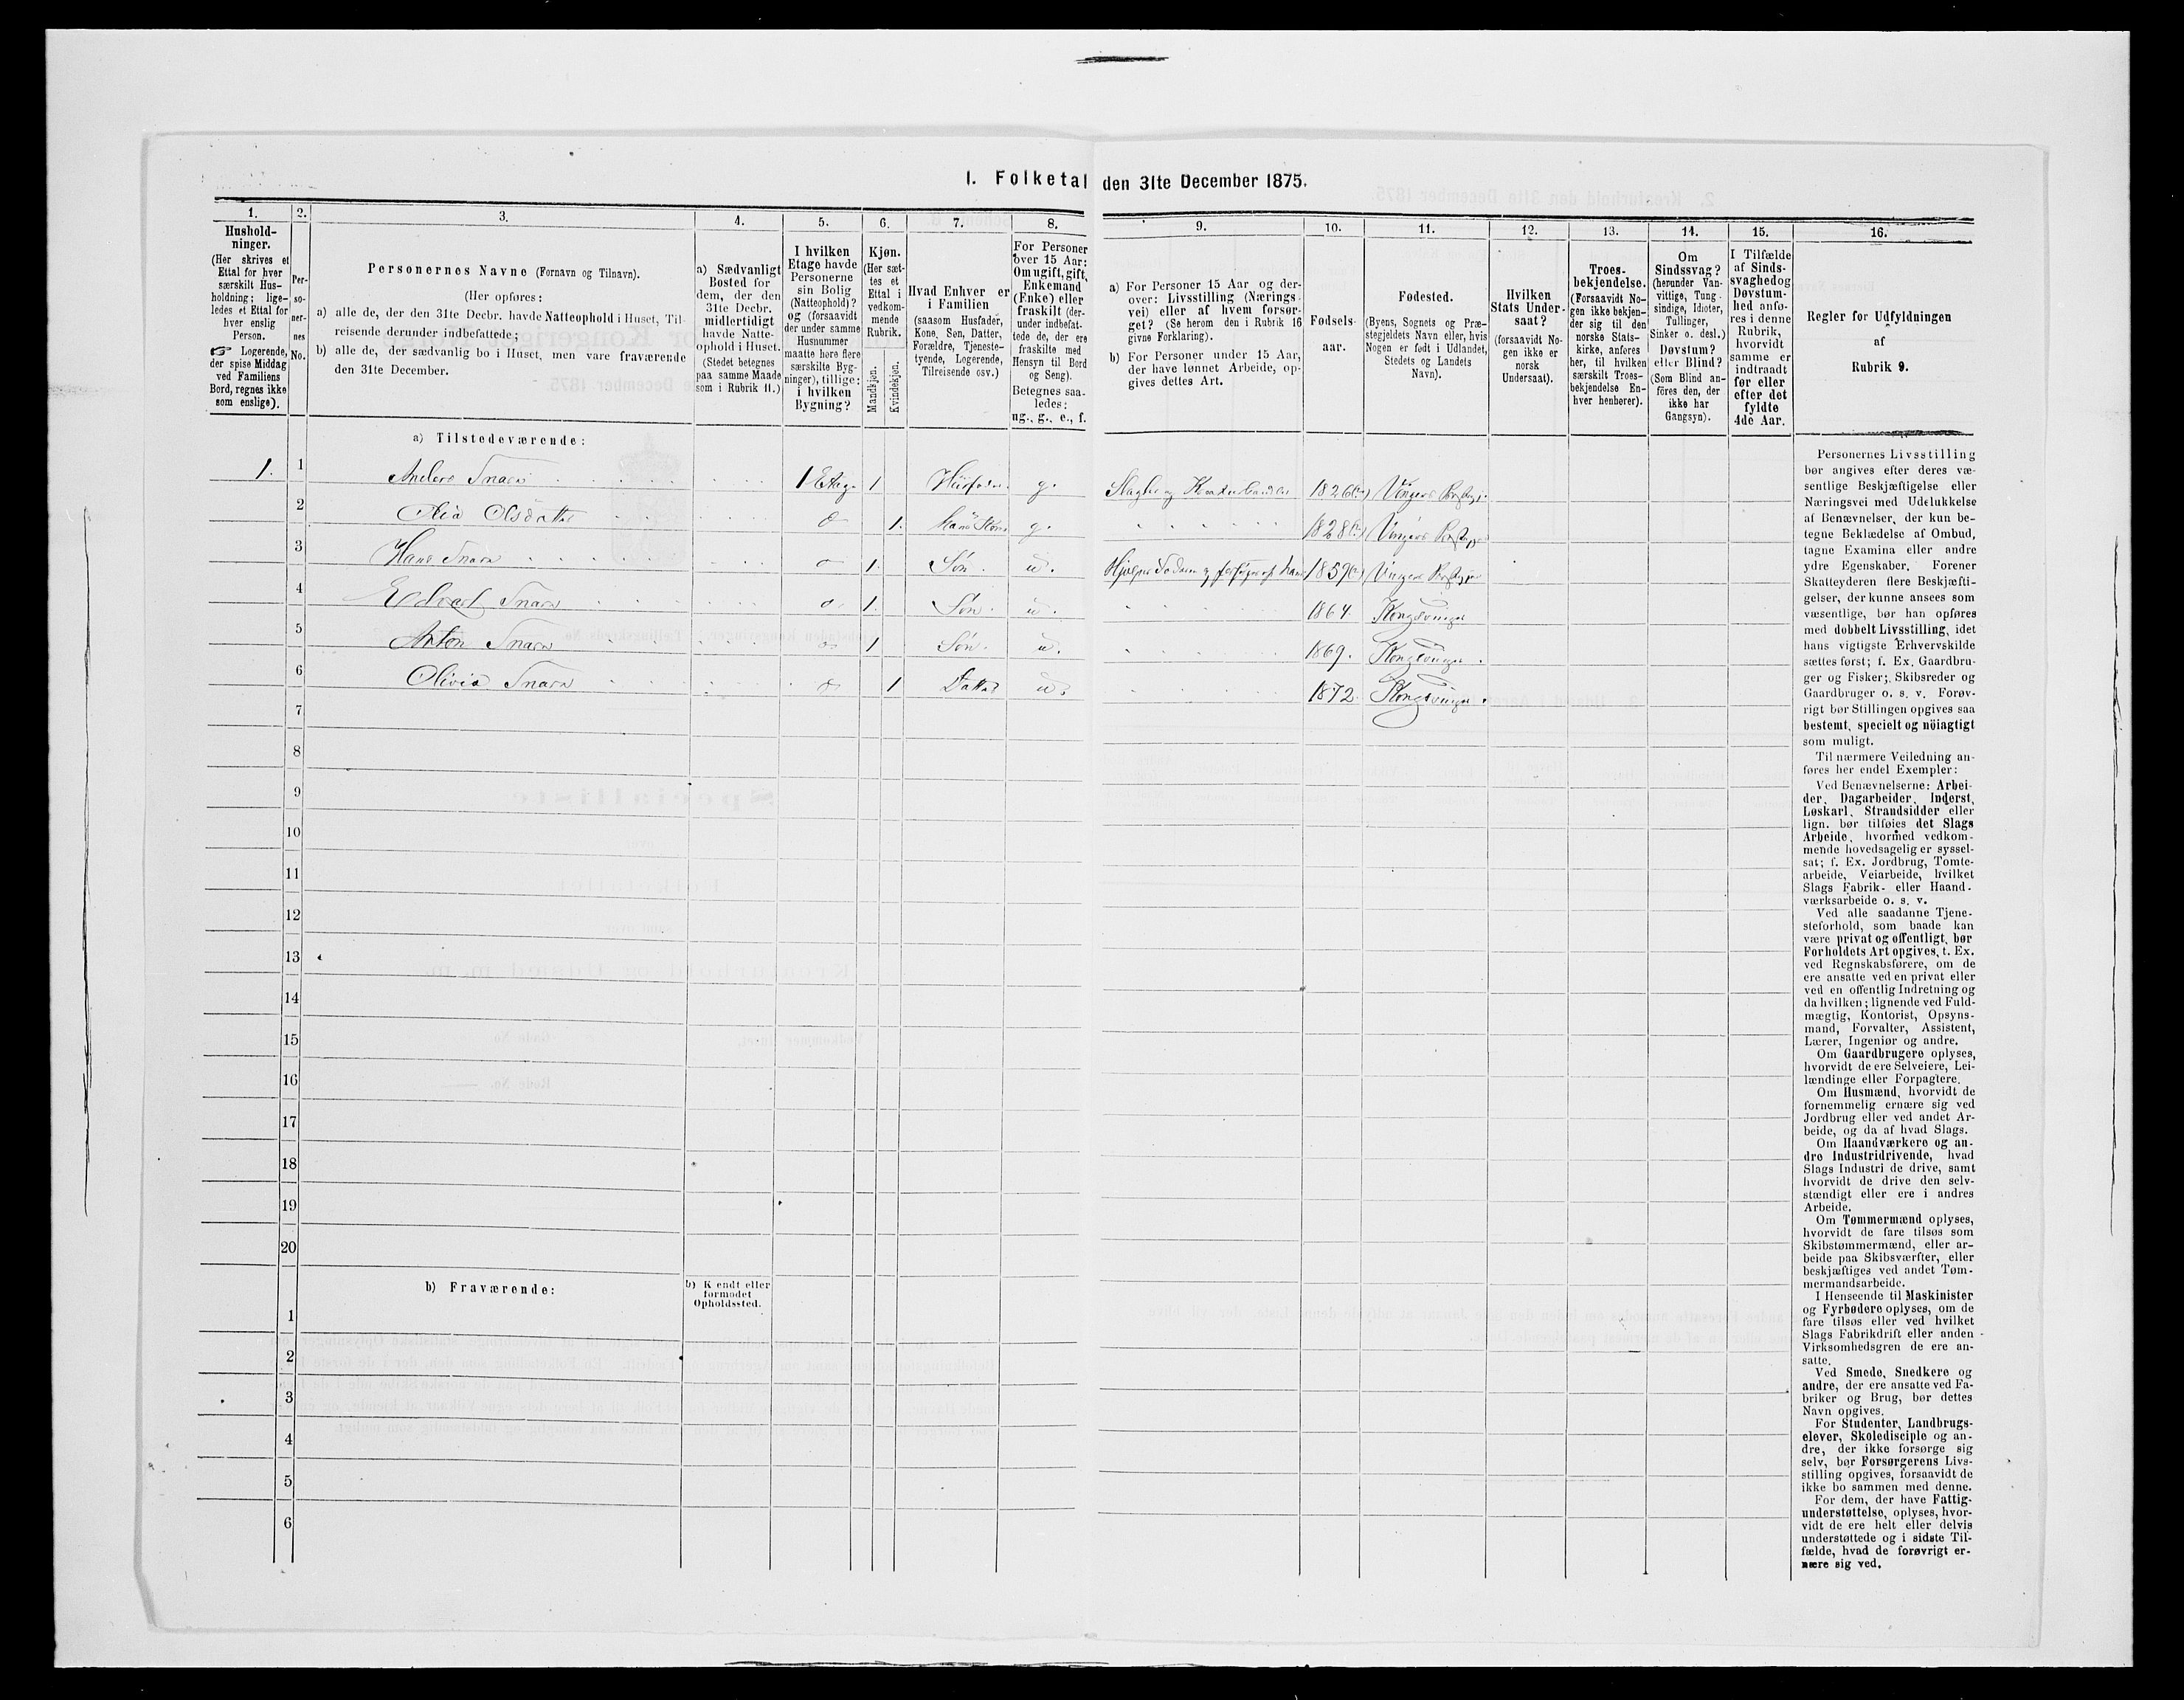 1. Folketal den 31te December 1875.
1.
Hushold-
ninger.
(Her skrives et
Ettal for hver
særskilt Hus-
holdning; lige-
ledes et Ettal for
hver enslig
Person.
☞ Logerende,
der spise Middag
ved Familiens
Bord, regnes ikke
som enslige).
2.
Per-
so-
ner-
nes
No.
3.
Personernes Navne (Fornavn og Tilnavn).
(Her opføres:
a) alle de, der den 31te Decbr. havde Natteophold i Huset, Til-
reisende derunder indbefattede;
b) alle de, der sædvanlig bo i Huset, men vare fraværende
den 31te December.
4.
a) Sædvanligt
Bosted for
dem, der den
31te Decbr.
midlertidigt
havde Natte-
ophold i Huset.
(Stedet betegnes
paa samme Maade
som i Rubrik 11.)
5.
I hvilken
Etage havde
Personerne
sin Bolig
(Natteophold)?
og (forsaavidt
der under samme
Husnummer
maatte høre flere
særskilte Byg-
ninger), tillige:
i hvilken
Bygning?
6.
Kjøn.
(Her sæt-
tes et
Ettal i
vedkom-
mende
Rubrik.
Mandkjøn.
Kvindekjøn.
7.
Hvad Enhver er
i Familien
(saasom Husfader,
Kone, Søn, Datter,
Forældre, Tjeneste-
tyende, Logerende,
Tilreisende osv.)
8.
For Personer
over 15 Aar:
Om ugift, gift,
Enkemand
(Enke) eller
fraskilt (der-
under indbefat-
tede de, der ere
fraskilte med
Hensyn til Bord
og Seng).
Betegnes saa-
ledes:
ug., g., e., f.
9.
a) For Personer 15 Aar og der-
over: Livsstilling (Nærings-
vei) eller af hvem forsør-
get? (Se herom den i Rubrik 16
givne Forklaring).
b) For Personer under 15 Aar,
der have lønnet Arbeide, op-
gives dettes Art.
10.
Fødsels-
aar.
11.
Fødested.
(Byens, Sognets og Præ-
stegjeldets Navn eller, hvis
Nogen er født i Udlandet,
Stedets og Landets
Navn).
12.
Hvilken
Stats Under-
saat?
(forsaavidt No-
gen ikke er
norsk
Undersaat).
13.
Troes-
bekjendelse.
(Forsaavidt No-
gen ikke bekjen-
der sig til den
norske Stats-
kirke, anføres
her, til hvilken
særskilt Troes-
bekjendelse En-
hver henhører).
14.
Om
Sindssvag?
(herunder Van-
vittige, Tung-
sindige, Idioter,
Tullinger,
Sinker o. desl.)
Døvstum?
eller Blind?
(Som Blind an-
føres den, der
ikke har
Gangsyn).
15.
I Tilfælde
af Sinds-
svaghed og
Døvstum-
hed anfø-
res i denne
Rubrik,
hvorvidt
samme er
indtraadt
før eller
efter det
fyldte
4de Aar.
16.
Regler for Udfyldningen
af
Rubrik 9.
a) Tilstedeværende:
1. 1 Anders Snare 1 Etage 1 Husfader g. og 1826 Vinger
2 Olsdatter 1. Kone g. 1828 Vinger
3 Hans Snare 1. Søn. u. Hjelper Faderen og forsørges af ham 1859 Vinger
4 Edvart Snare 1. Søn. u. 1864 Kongsvinger
5 Anton Snare 1 Søn. u. 1869. Kongsvinger.
6 Olivia Snare 1 Datter u. 1872. Kongsvinger.
7
8
9
10
11
12
13
14
15
16
17
18
19
20
b) Fraværende:
b) Kjendt eller
formodet
Opholdssted.
1
2
3
4
5
6
Personernes Livsstilling
bør angives efter deres væ-
sentlige Beskjæftigelse eller
Næringsvei med Udelukkelse
af Benævnelser, der kun be-
tegne Beklædelse af Ombud,
tagne Examina eller andre
ydre Egenskaber. Forener
Skatteyderen flere Beskjæfti-
gelser, der kunne ansees som
væsentlige, bør han opføres
med dobbelt Livsstilling, idet
hans vigtigste Erhvervskilde
sættes først; f. Ex. Gaardbru-
ger og Fisker; Skibsreder og
Gaardbruger o. s. v. Forøv-
rigt bør Stillingen opgives saa
bestemt, specielt og nöiagtigt
som muligt.
Til nærmere Veiledning an-
føres her endel Exempler:
Ved Benævnelserne: Arbei-
der, Dagarbeider, Inderst,
Løskarl, Strandsidder eller
lign. bør tilføies det Slags
Arbeide, hvormed vedkom-
mende hovedsagelig er syssel-
sat; f. Ex. Jordbrug, Tomte-
arbeide, Veiarbeide, hvilket
Slags Fabrik- eller Haand-
værksarbeide o. s. v.
Ved alle saadanne Tjene-
steforhold, som baade kan
være privat og offentligt, bør
Forholdets Art opgives, t. Ex.
ved Regnskabsførere, om de
ere ansatte ved en privat eller
ved en offentlig Indretning og
da hvilken; lignende ved Fuld-
mægtig, Kontorist, Opsyns-
mand, Forvalter, Assistent,
Lærer, Ingeniør og andre.
Om Gaardbrugere oplyses,
hvorvidt de ere Selveiere, Lei-
lændinge eller Forpagtere.
Om Husmænd, hvorvidt de
fornemmelig ernære sig ved
Jordbrug eller ved andet Ar-
beide, og da af hvad Slags.
Om Haandværkere og an-
dre Industridrivende, hvad
Slags Industri de drive, samt
hvorvidt de drive den selv-
stændigt eller ere i andres
Arbeide.
Om Tømmermænd oplyses,
hvorvidt de fare tilsøs som
Skibstømmermænd, eller ar-
beide paa Skibsværfter, eller
beskjæftiges ved andet Tøm-
mermandsarbeide.
I Henseende til Maskinister
og Fyrbødere oplyses, om de
fare tilsøs eller ved hvilket
Slags Fabrikdrift eller anden
Virksomhedsgren de ere an-
satte.
Ved Smede, Snedkere og
andre, der ere ansatte ved Fa-
briker og Brug, bør dettes
Navn opgives.
For Studenter, Landbrugs-
elever, Skoledisciple og an-
dre, der ikke forsørge sig
selv, bør Forsørgerens Livs-
stilling opgives, forsaavidt de
ikke bo sammen med denne.
For dem, der have Fattig-
understøttelse, oplyses, hvor-
vidt de ere helt eller delvis
understøttede og i sidste Til-
fælde, hvad de forøvrigt er-
nære sig ved.